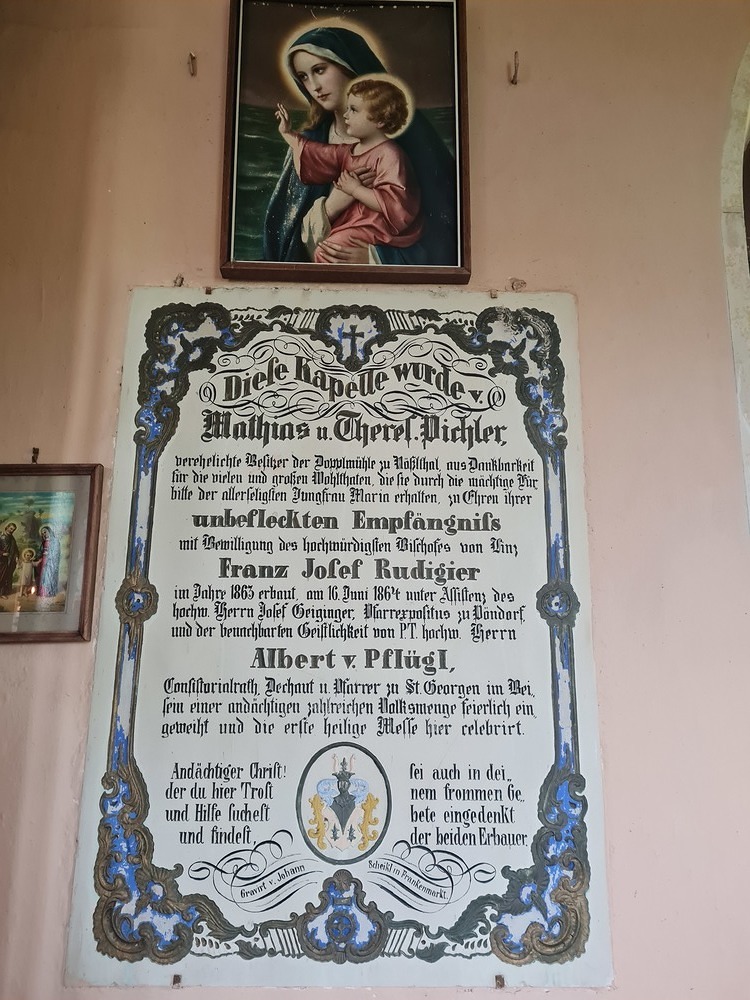 Diese Kapelle wurde v.
Mathias u. Theres. Pichler,
verehelichte Besitzer der Dopplmühle zu Vößlthal, aus Dankbarkeit
für die vielen und großen Wohlthaten, die sie durch die mächtige Für
bitte der allerseligsten Jungfrau Maria erhalten, zu Ehren ihrer
unbefleckten Empfängniß
mit Bewilligung des hochwürdigsten Bischofes von Linz
Franz Josef Rudigier
im Jahre 1863 erbaut, am 16. Juni 1864 unter Assistenz des
hochw. Herrn Josef Geiginger, Pfarrexpositus zu Pöndorf,
und der benachbarten Geistlichkeit von P.T. hochw. Herrn
Albert v. Pflügl,
Consistorialrath, Dechant u. Pfarrer zu St. Georgen im Bei,
sein einer andächtigen zahlreichen Volksmenge feierlich ein
geweiht und die erste heilige Messe hier celebrirt.
Andächtiger Christ!
der du hier Trost
und Hilfe suchest
und findest,
sei auch in dei„
nem frommen Ge„
bete eingedenkt
der beiden Erbauer.
Gravirt v. Johann
Scheikl in Frankenmarkt.